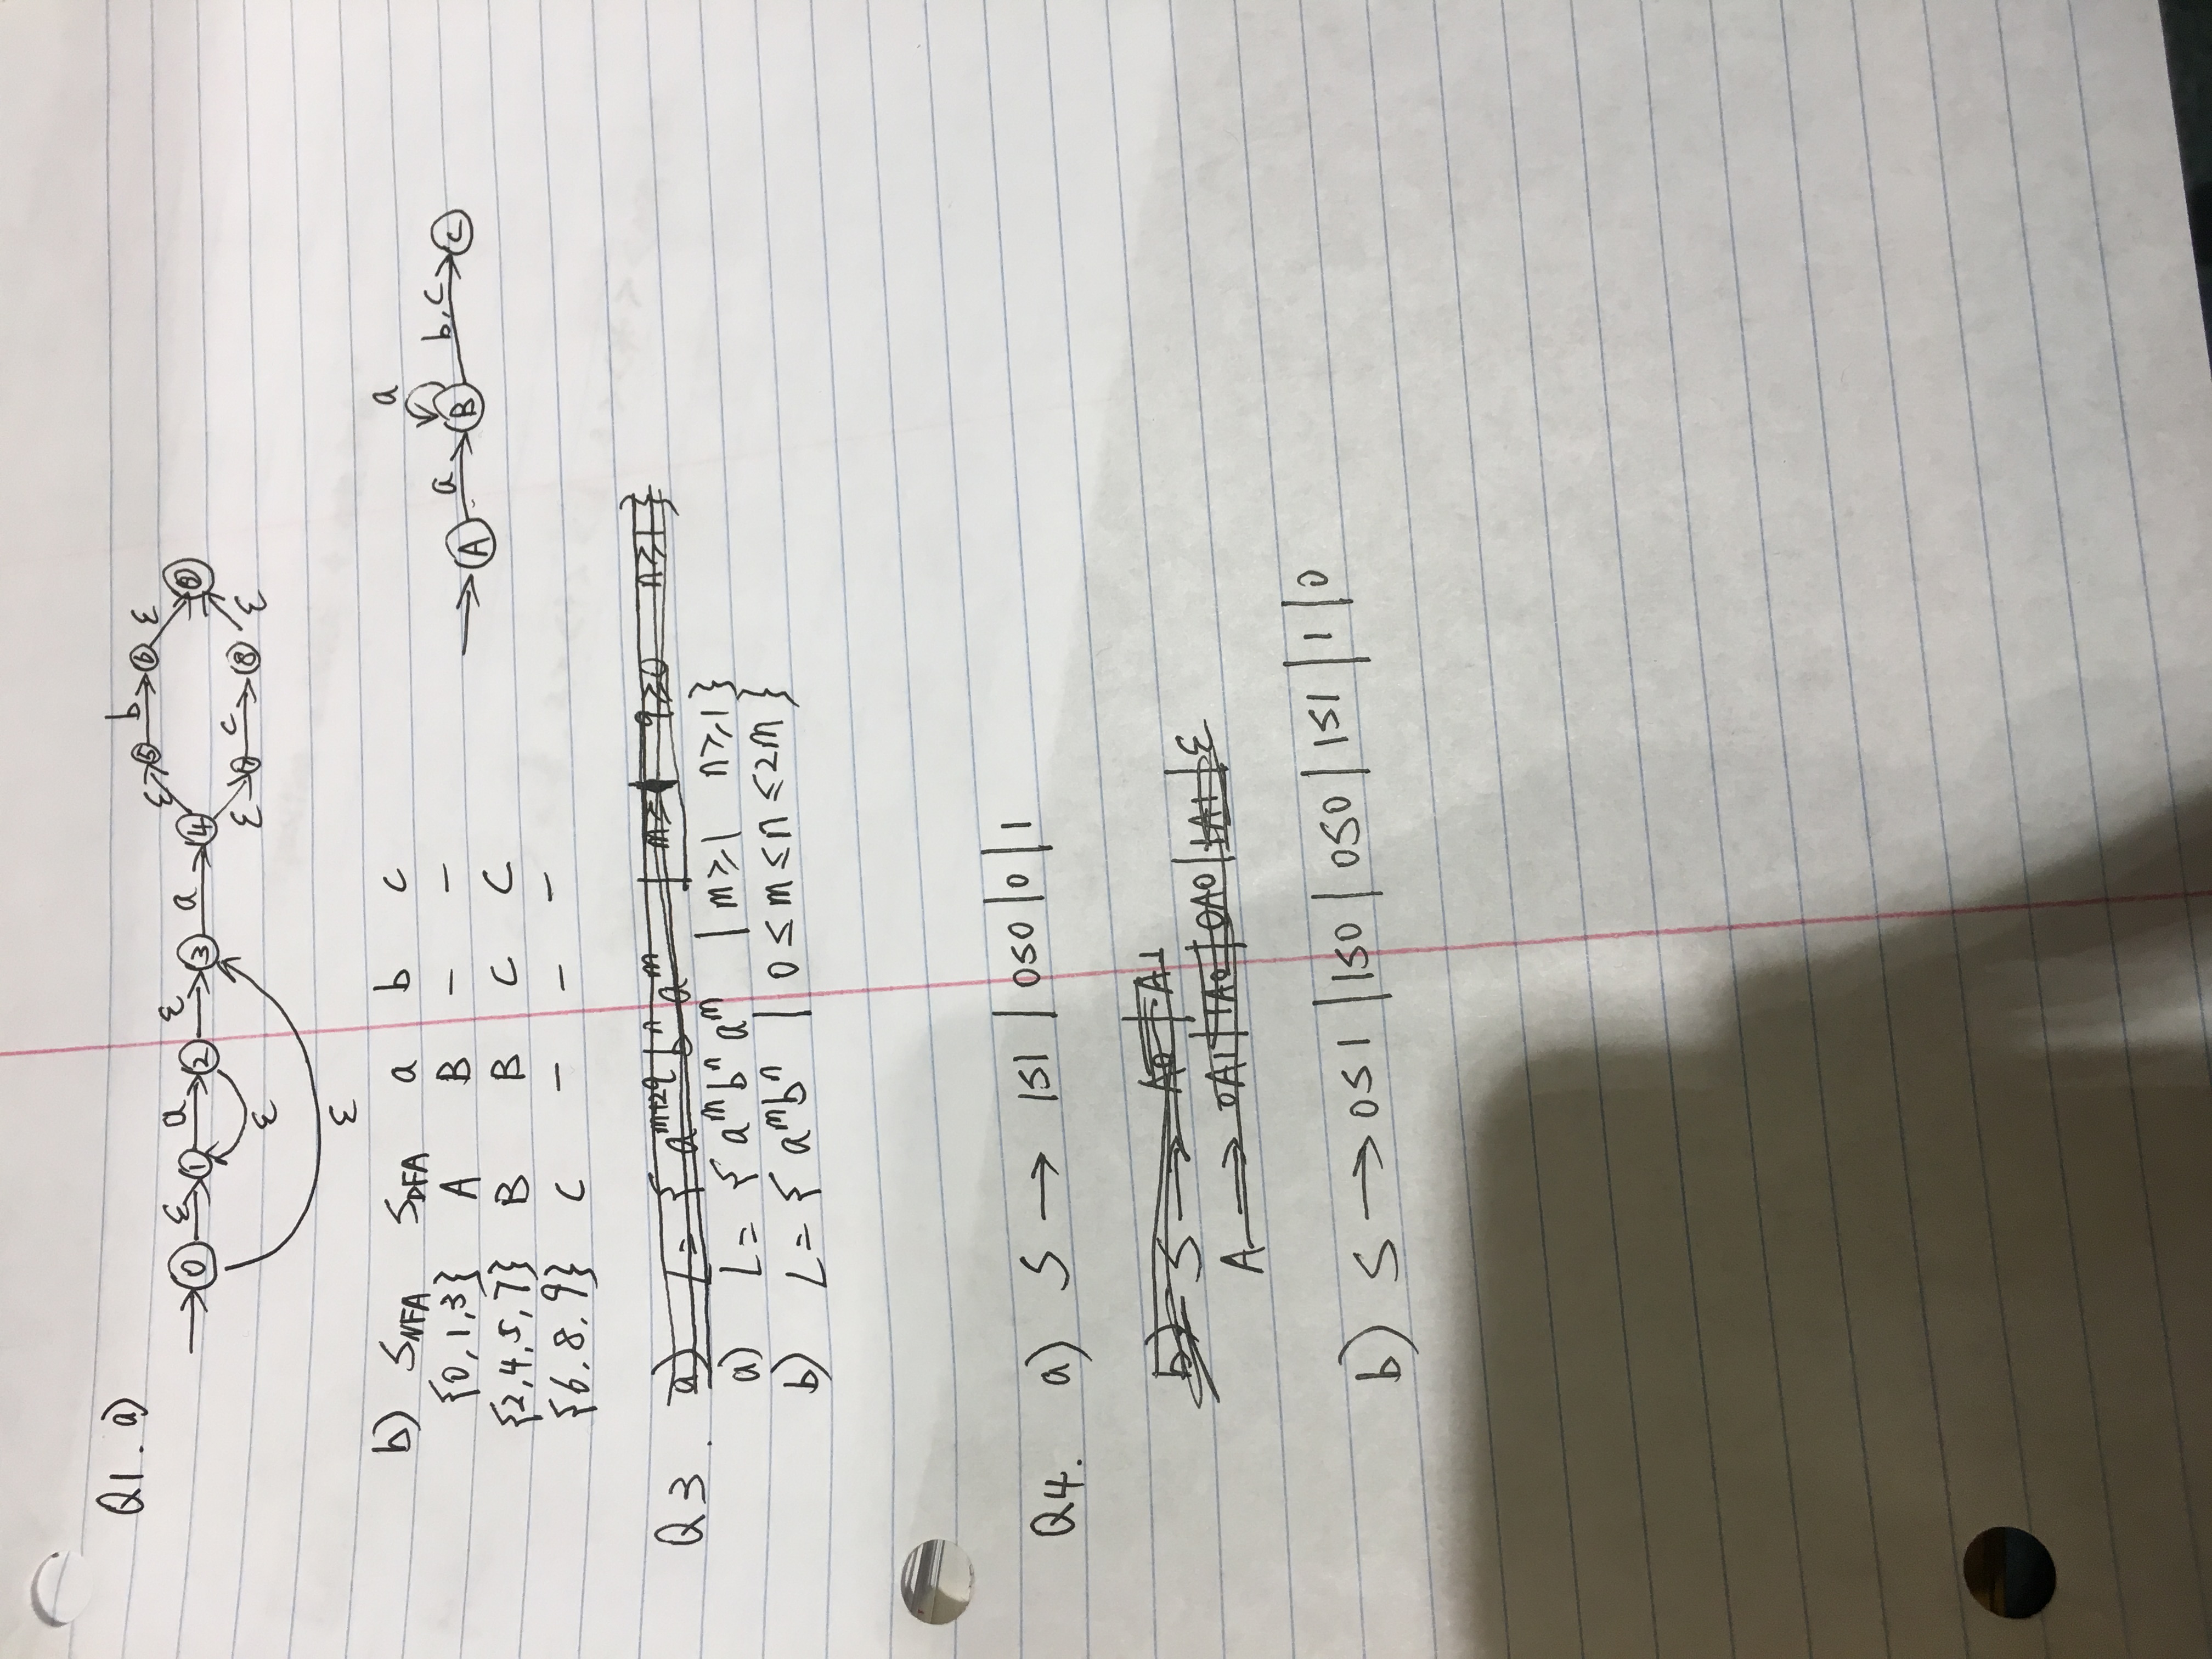 Q1. a)
→ 0 ε 1 a 2 ε 3 a 4 ε 5 b 6 ε 9
ε 7 c 8 ε
ε
ε
b) S_NFA S_DFA a b c
{0,1,3} A B – –
{2,4,5,7} B B C C
{6,8,9} C – – –
a
→ A a B b,c C
Q3. a) L = { a^{m+2q} b^n a^m | m≥1 q≥0 n≥1 }
a) L = { a^m b^n a^m | m≥1 n≥1 }
b) L = { a^m b^n | 0 ≤ m ≤ n ≤ 2m }
Q4. a) S → 1S1 | 0S0 | 0 | 1
b) S → A0 | A1
A → 0A1 | 1A0 | 0A0 | 1A1 | ε
b) S → 0S1 | 1S0 | 0S0 | 1S1 | 1 | 0